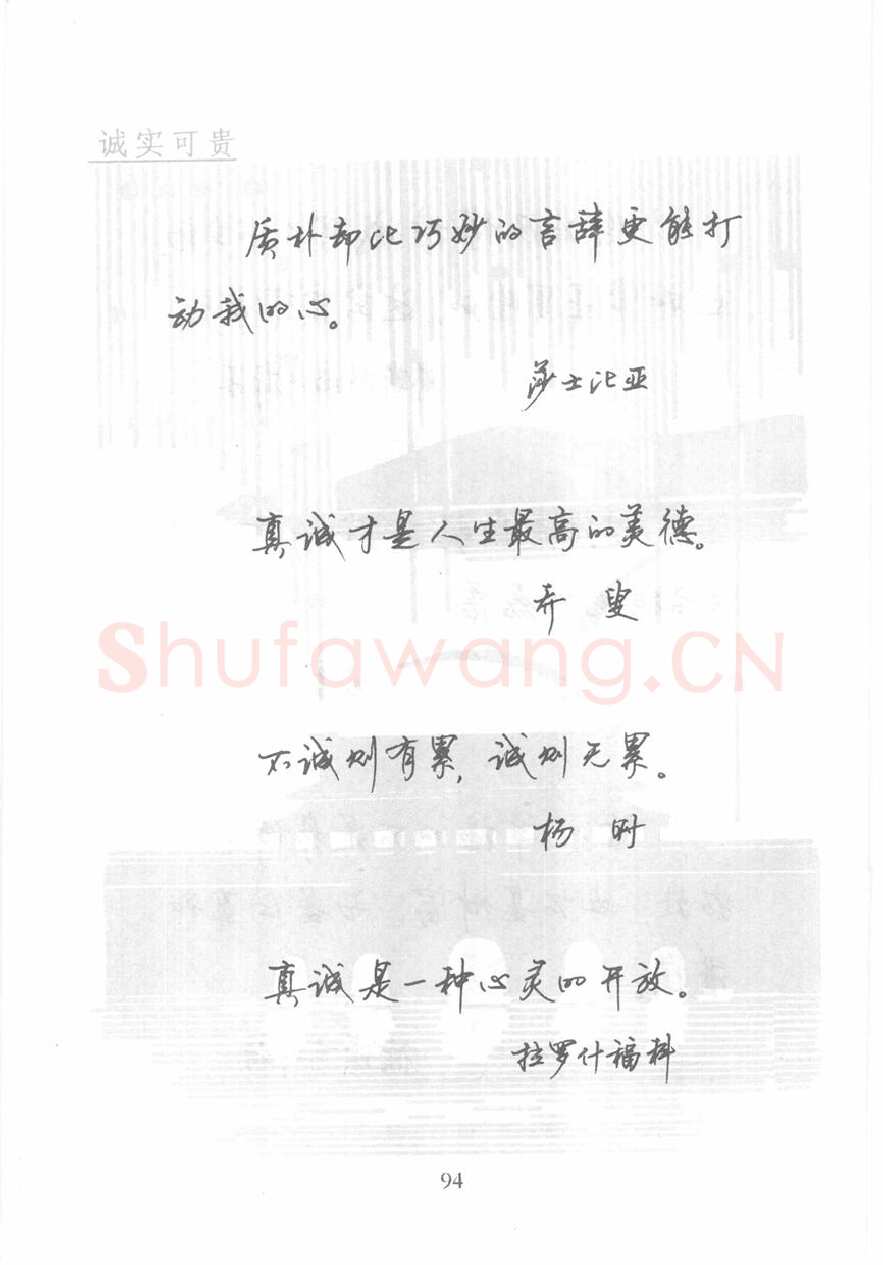 诚实可贵
质朴却比巧妙的言辞更能打
动我的心。
莎士比亚
真诚才是人生最高的美德。
乔 叟
Shufawang.CN
不诚则有累,诚则无累。
杨 时
真诚是一种心灵的开放。
拉罗什福科
94